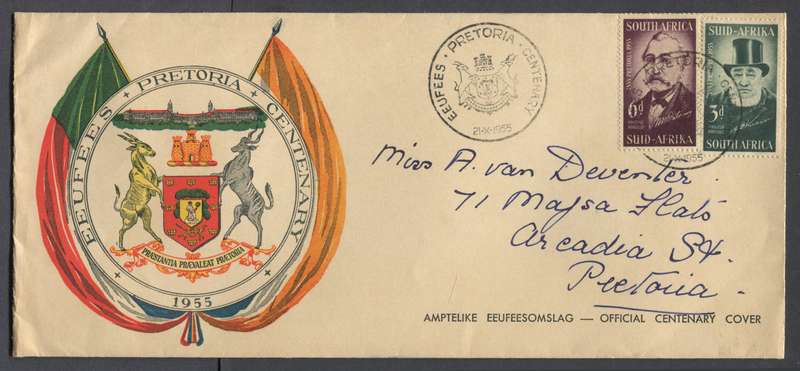 EEUFEES · PRETORIA · CENTENARY
PRÆSTANTIA PRÆVALEAT PRÆTORIA
1955
EEUFEES · PRETORIA · CENTENARY
21·XI·1955
SOUTH AFRICA
6d
SUID-AFRIKA
SUID-AFRIKA
3d
SOUTH AFRICA
21·XI·1955
Miss A. van Deventer.
71 Majsa Flats
Arcadia St.
Pretoria.
AMPTELIKE EEUFEESOMSLAG — OFFICIAL CENTENARY COVER